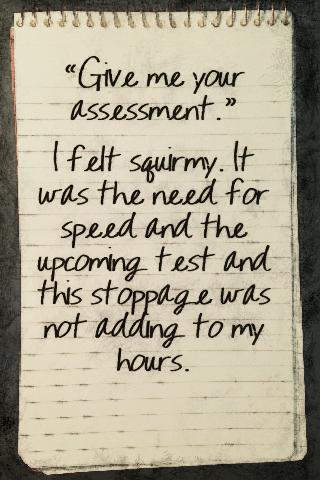 “Give me your
assessment.”
I felt squirmy. It
was the need for
speed and the
upcoming test and
this stoppage was
not adding to my
hours.